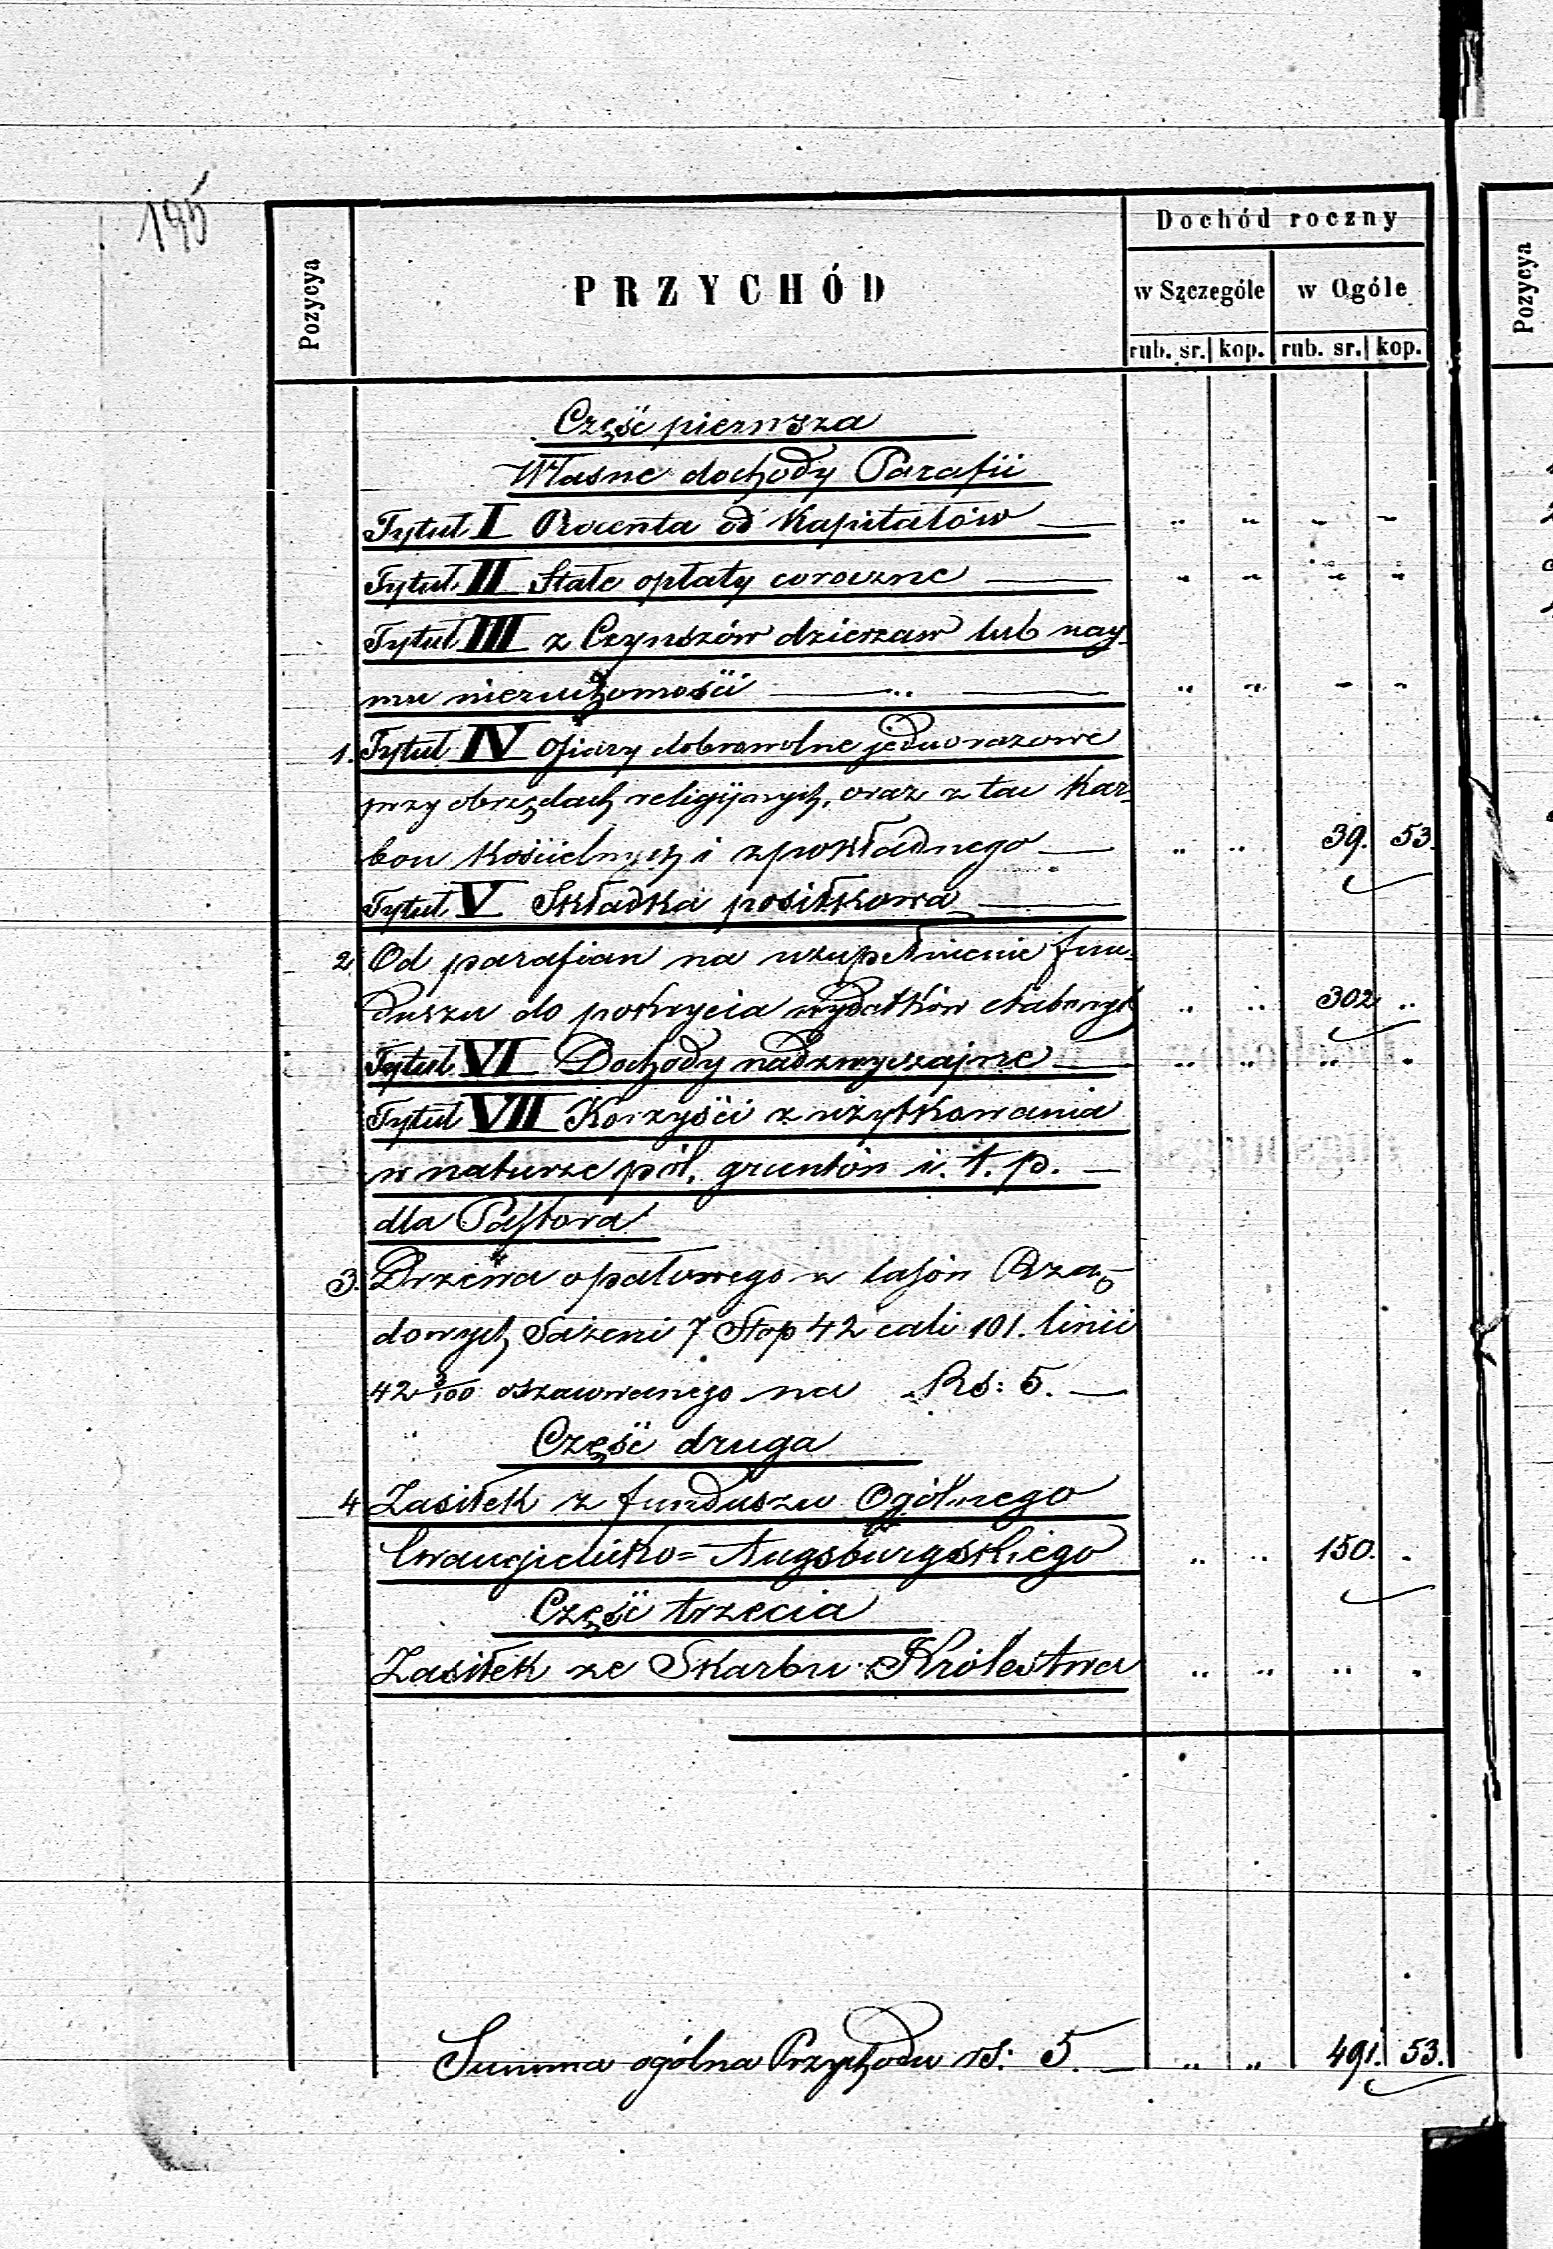 195
Pozycya
PRZYCHÓD
Dochód roczny
w Szczególe w Ogóle
rub. sr. kop. rub. sr. kop.
Pozycya
Część pierwsza
Własne dochody Parafii
Tytuł I Procenta od Kapitałów — „ „ „ „
Tytuł II Stałe opłaty coroczne — „ „ „ „
Tytuł III z Czynszów dzierżaw lub nay-
mu nieruchomości — „ — „ „ „ „
1. Tytuł IV Ofiary dobrowolne jednorazowe
przy obrzędach religijnych, oraz z tac Kar-
bon Kościelnych i zpokładnego — „ „ 39. 53.
Tytuł V Składka posiłkowa —
2 Od parafian na uzupełnienie fun-
duszu do pokrycia wydatków etabowych „ „ 302 „
Tytuł VI Dochody nadzwyczajne — „ „ „ „
Tytuł VII Korzyści z użytkowania
w naturze pól, gruntów i. t. p. —
dla Pastora
3. Drzewa opałowego z lasów Rzą-
dowych Sążeni 7 Stop 42 cali 101. linii
42 3/100 oszacowanego na Rs: 5. —
Część druga
4 Zasiłek z funduszu Ogólnego
Ewangielicko= Augsburgskiego „ „ 150. „
Część trzecia
Zasiłek ze Skarbu Królestwa „ „ „ „
Summa ogólna Przychodu rs: 5. — „ „ 491. 53.